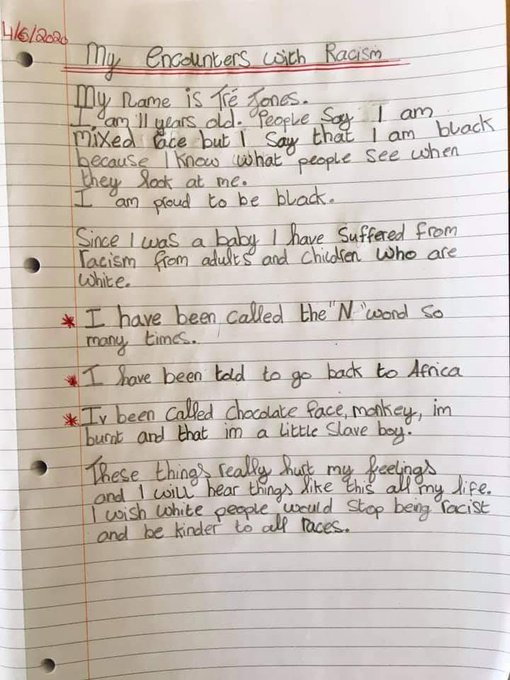 4/6/2020
My encounters with Racism
My name is Tré Jones.
I am 11 years old. People Say I am
mixed race but I Say that I am black
because I know what people see when
they look at me.
I am proud to be black.
Since I was a baby I have Suffered from
racism from adults and children who are
white.
* I have been called the "N" word so
many times.
* I have been told to go back to Africa
* Iv been called chocolate face, monkey, im
burnt and that im a little slave boy.
These things really hurt my feelings
and I will hear things like this all my life.
I wish white people would stop being racist
and be kinder to all races.